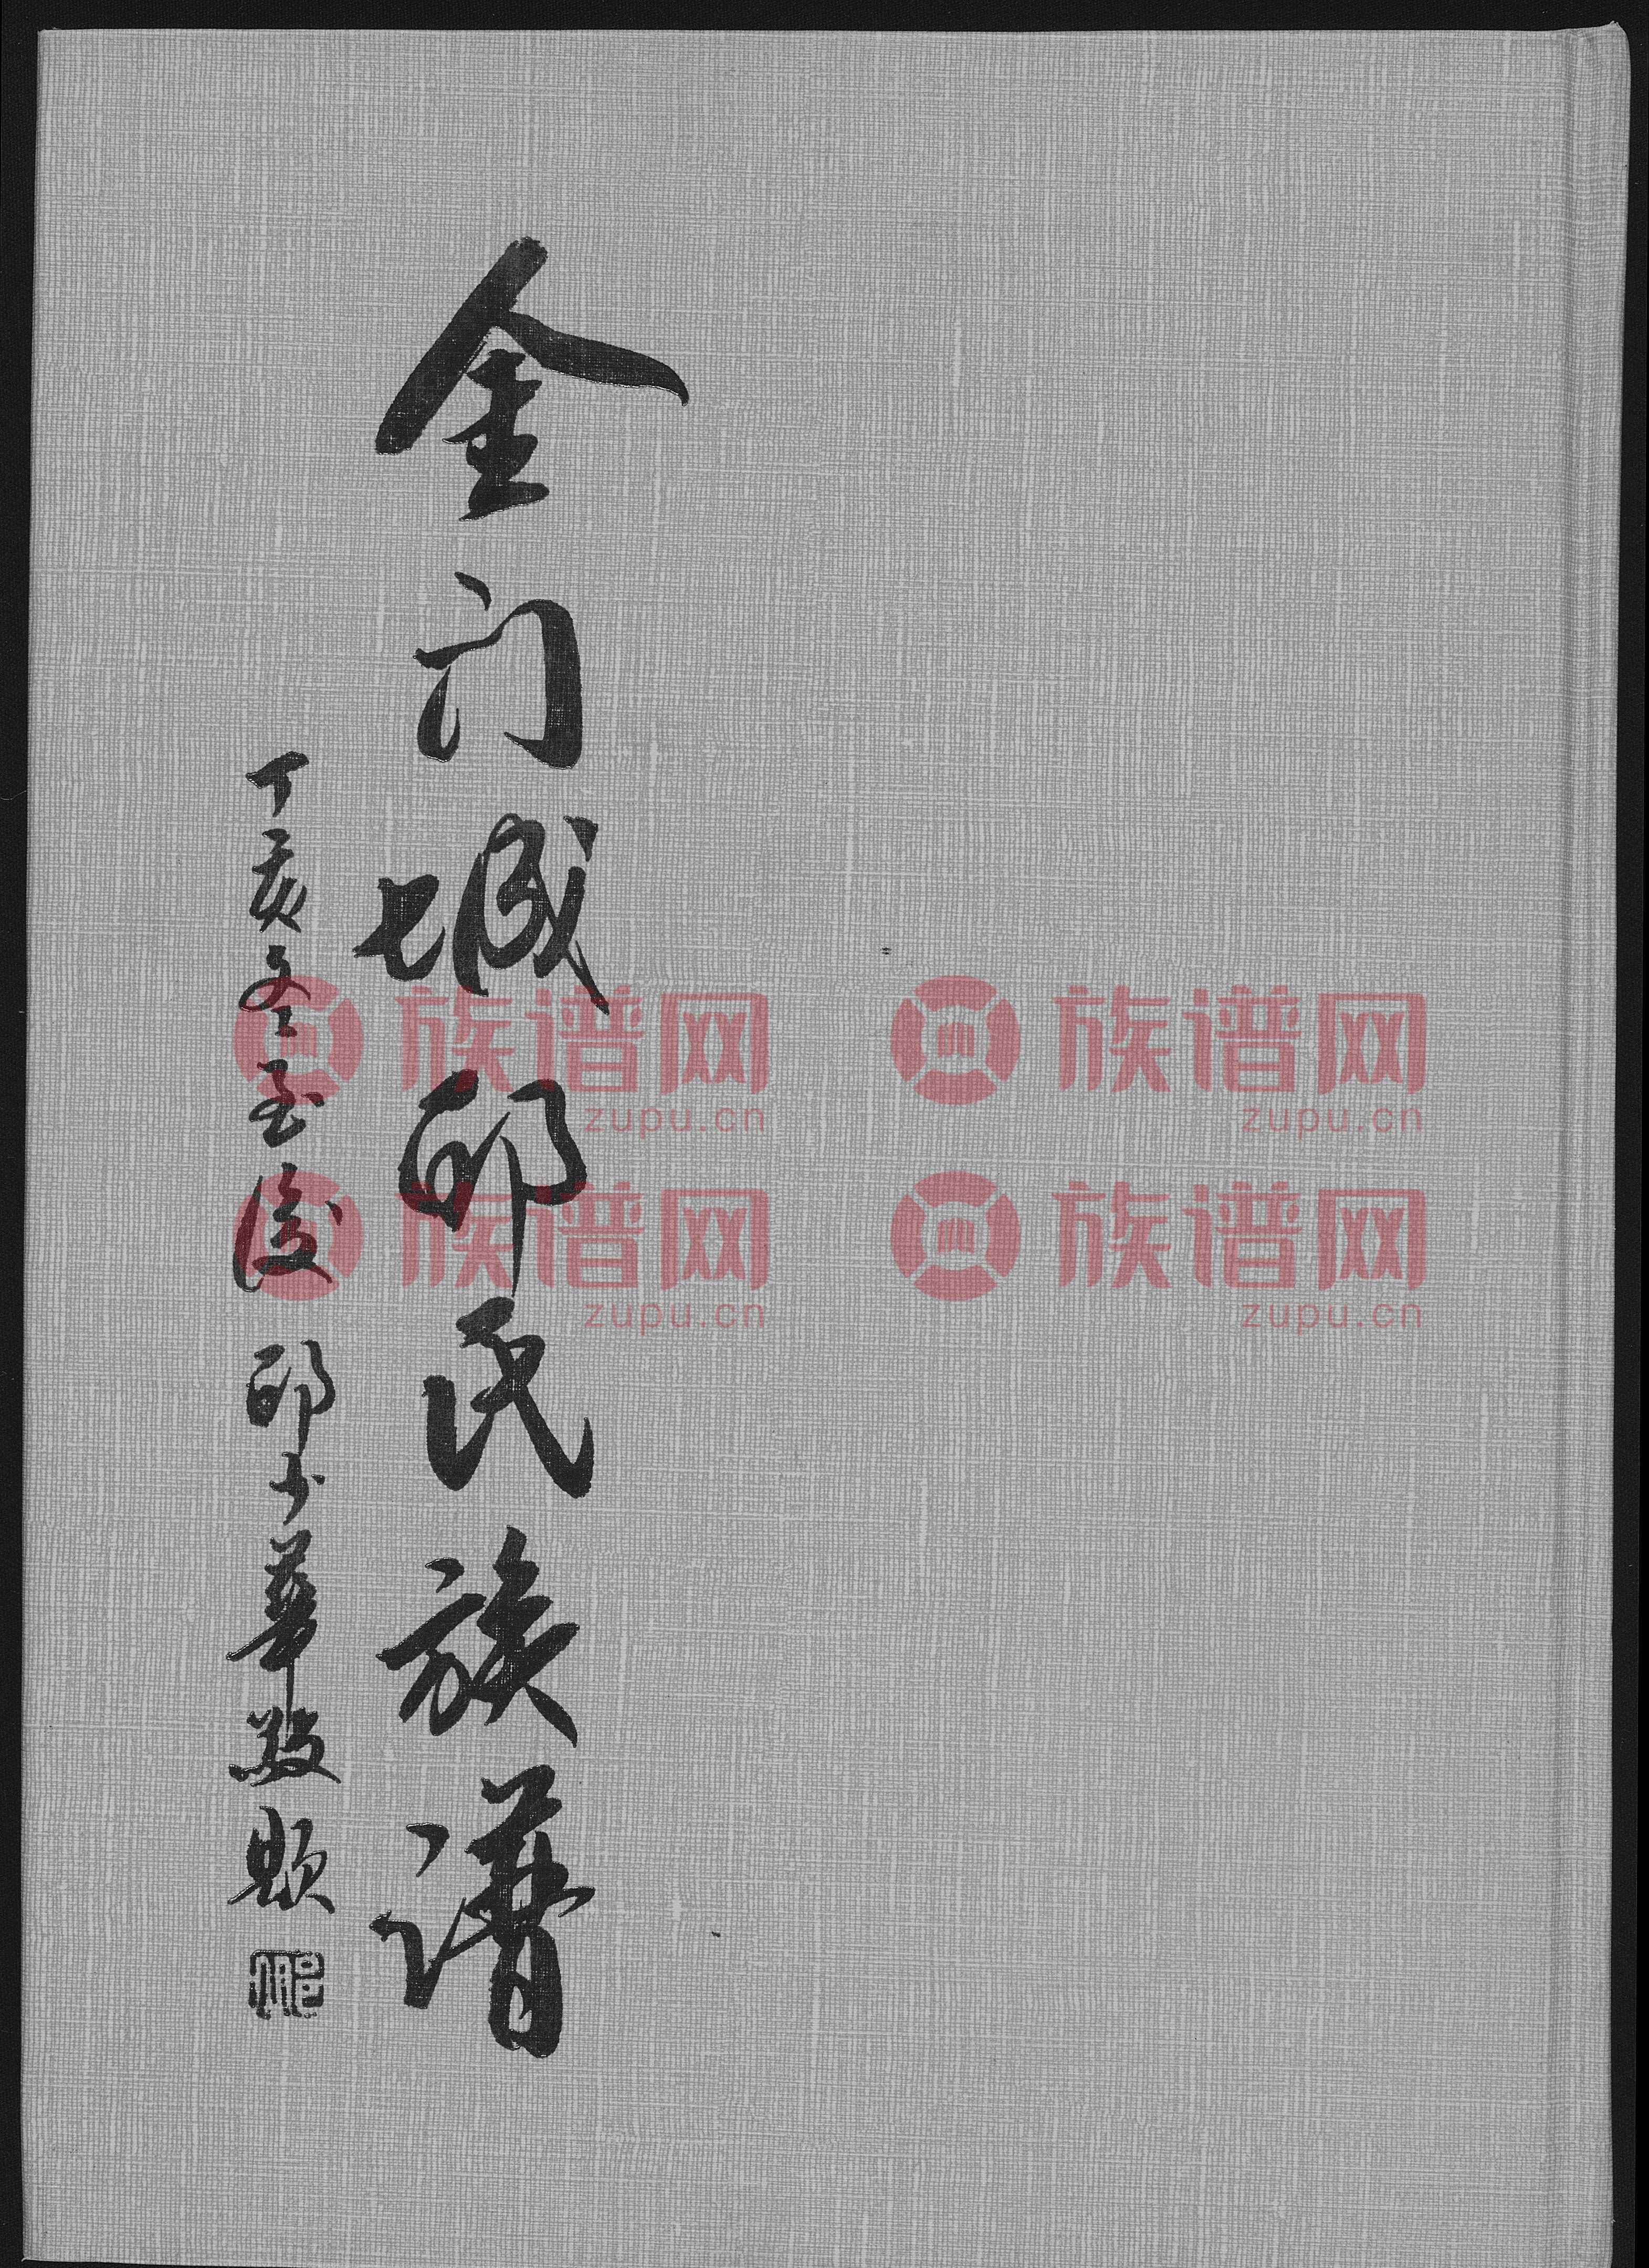 金门城邱氏族譜
丁亥冬至後 邱少華敬題
族谱网 族谱网
zupu.cn zupu.cn
族谱网 族谱网
zupu.cn zupu.cn